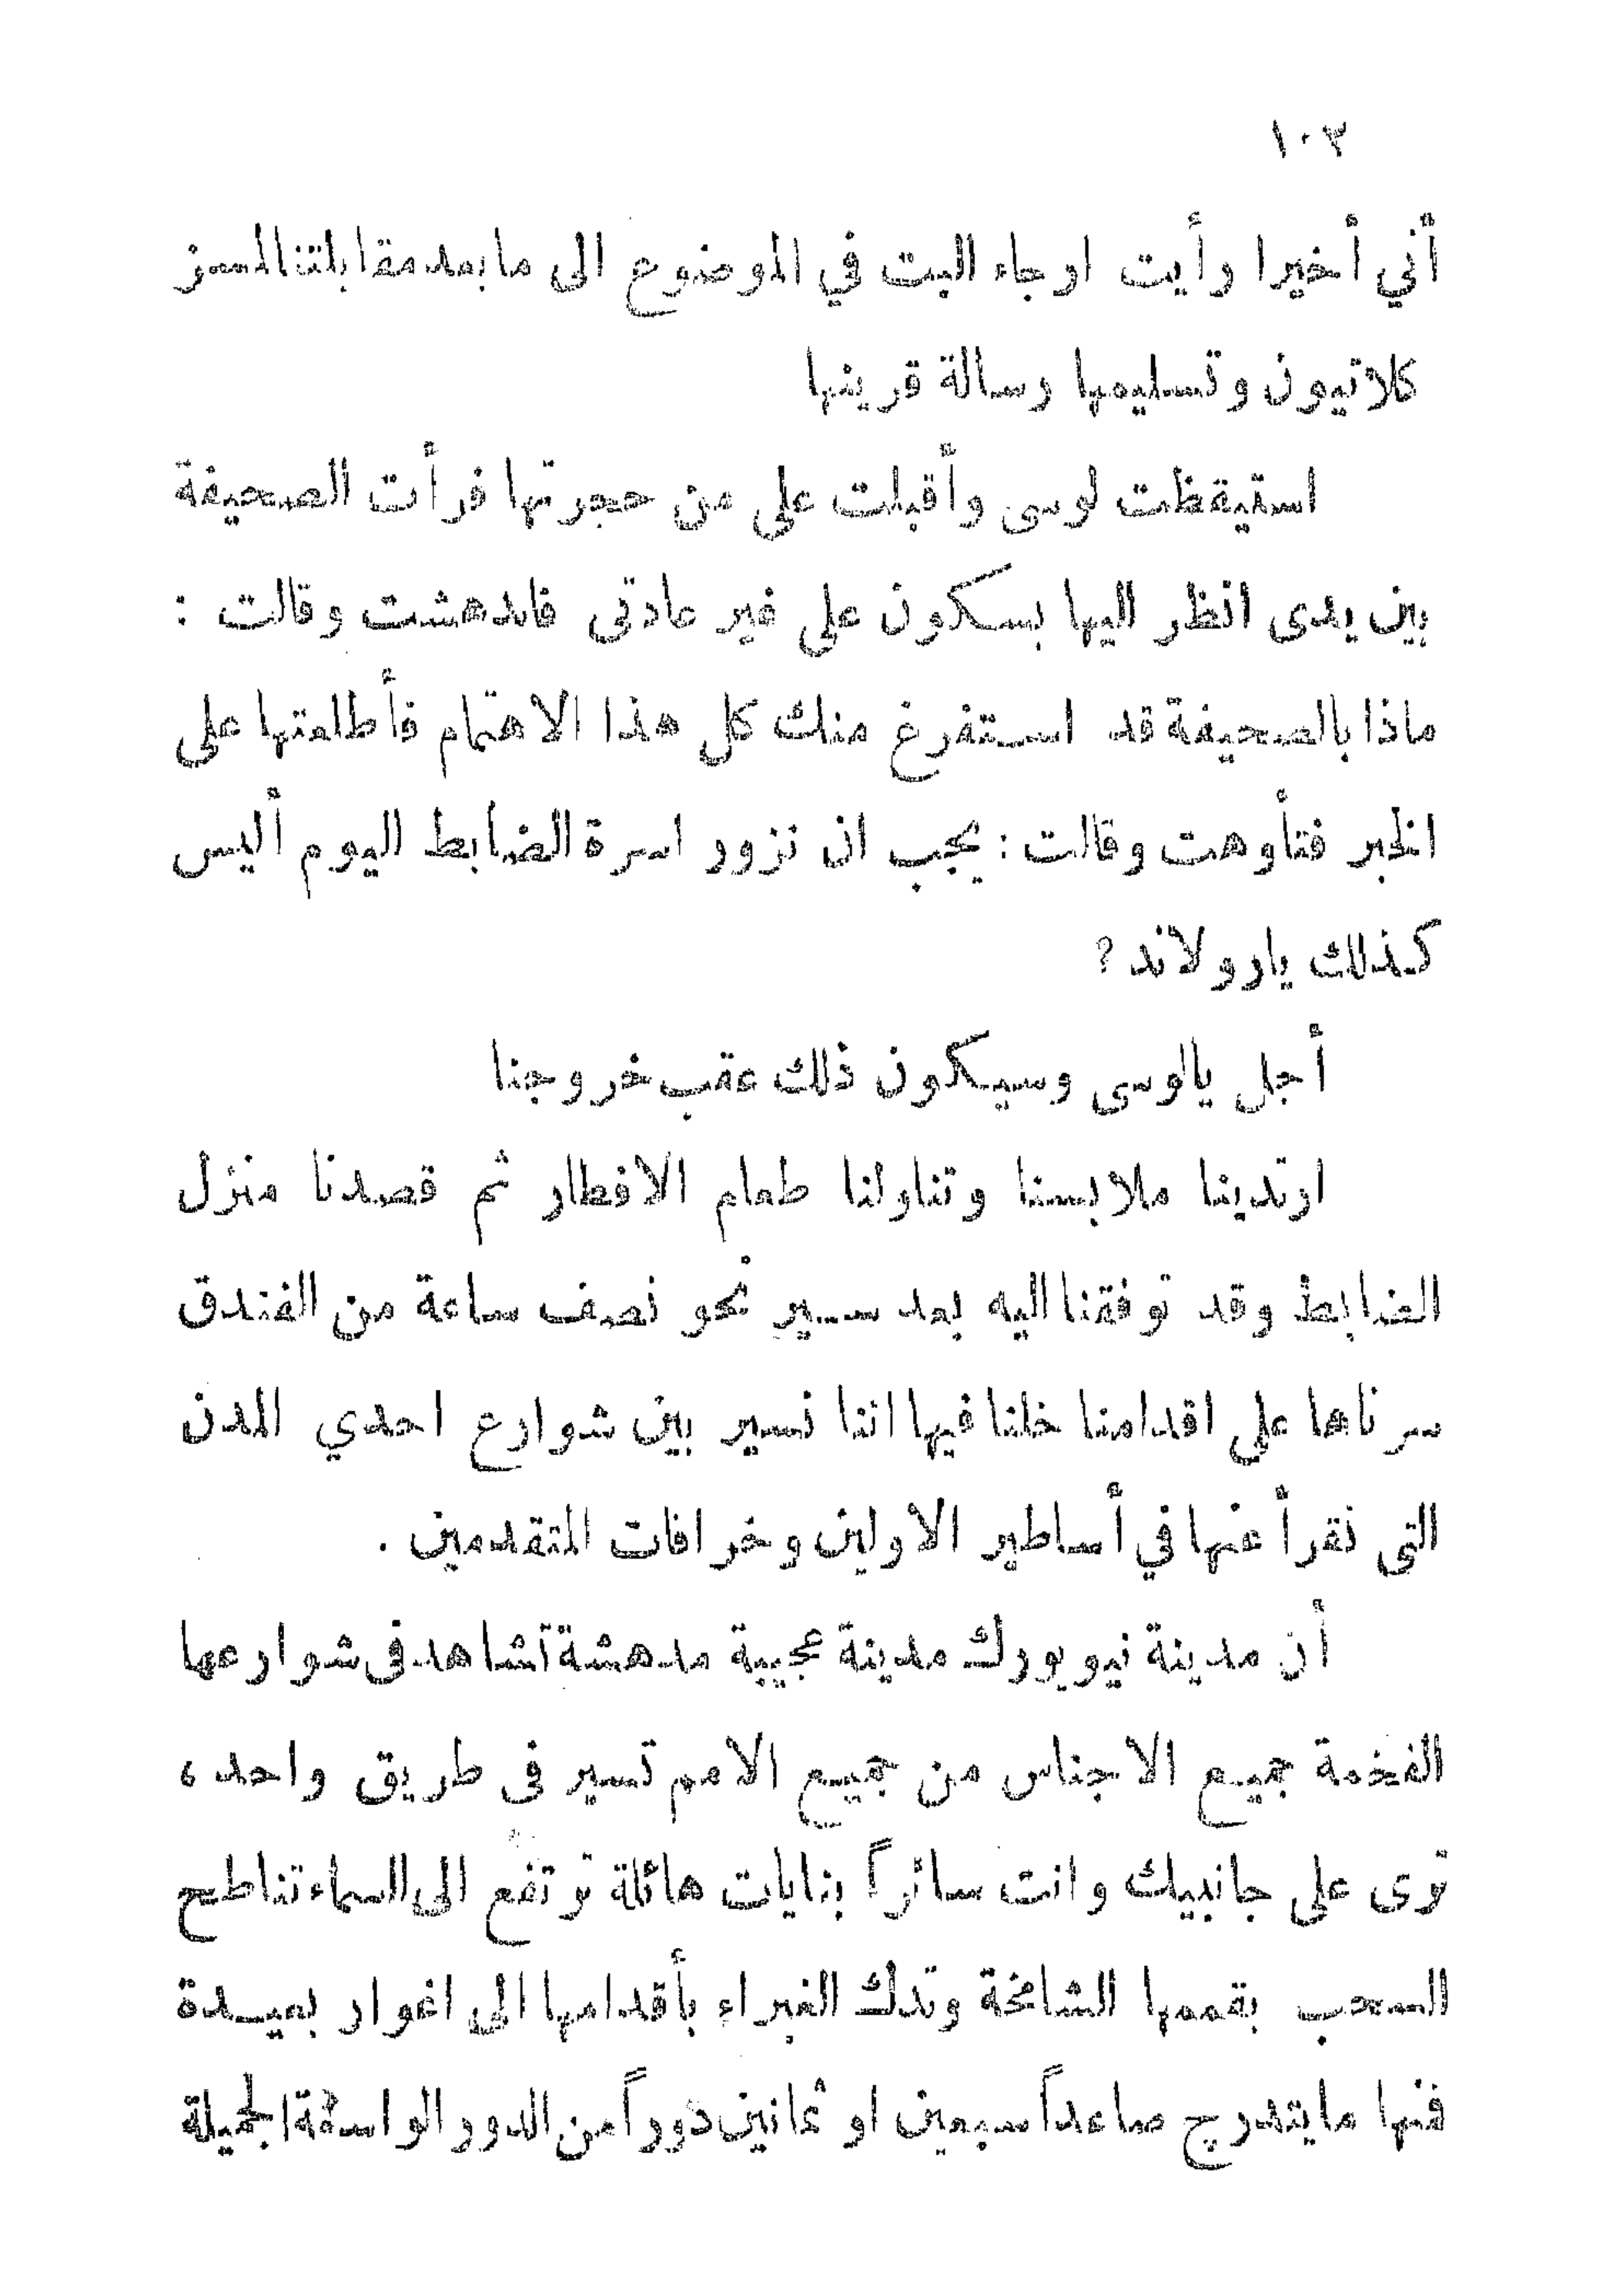 ١٠٣
أنني أخيرا رأيت ارجاء البت في الموضوع الى ما بعد مقابلتنا لمسز
كلاتيون وتسليمها رسالة قرينها
استيقظت لوسى وأقبلت على من حجرتها فرأت الصحيفة
بين يدى انظر اليها بسكون على غير عادتى فاندهشت وقالت :
ماذا بالصحيفة قد استفرغ منك كل هذا الاهتمام فأطلعتها على
الخبر فتأوهت وقالت : يجب ان نزور اسرة الضابط اليوم أليس
كذلك يارولاند ؟
أجل يالوسى وسيكون ذلك عقب خروجنا
ارتدينا ملابسنا وتناولنا طعام الافطار ثم قصدنا منزل
الضابط وقد توفقنا اليه بعد سير نحو نصف ساعة من الفندق
سرناها على اقدامنا خلنا فيها اننا نسير بين شوارع احدي المدن
التى نقرأ عنها في أساطير الاولين وخرافات المتقدمين .
أن مدينة نيويورك مدينة عجيبة مدهشة تشاهد فى شوارعها
الفخمة جميع الاجناس من جميع الامم تسير فى طريق واحد ،
ترى على جانبيك وانت سائراً بنايات هائلة ترتفع الى السماء تناطح
السحب بقممها الشامخة وتدك الغبراء بأقدامها الى اغوار بعيدة
فمنها ما يتدرج صاعداً سبعين او ثمانين دوراً من الدور الواسعة الجميلة